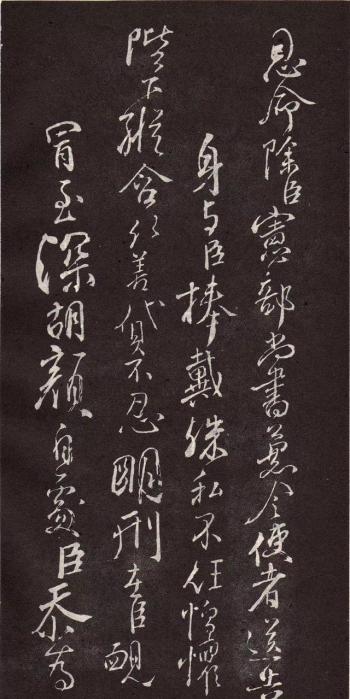 恩命除臣憲部尚書兼令使者送告
身与臣捧戴殊私不任惶懼
陛下縱含弘善貸不忍明刑在臣靦
冒至深胡顏自處臣忝為